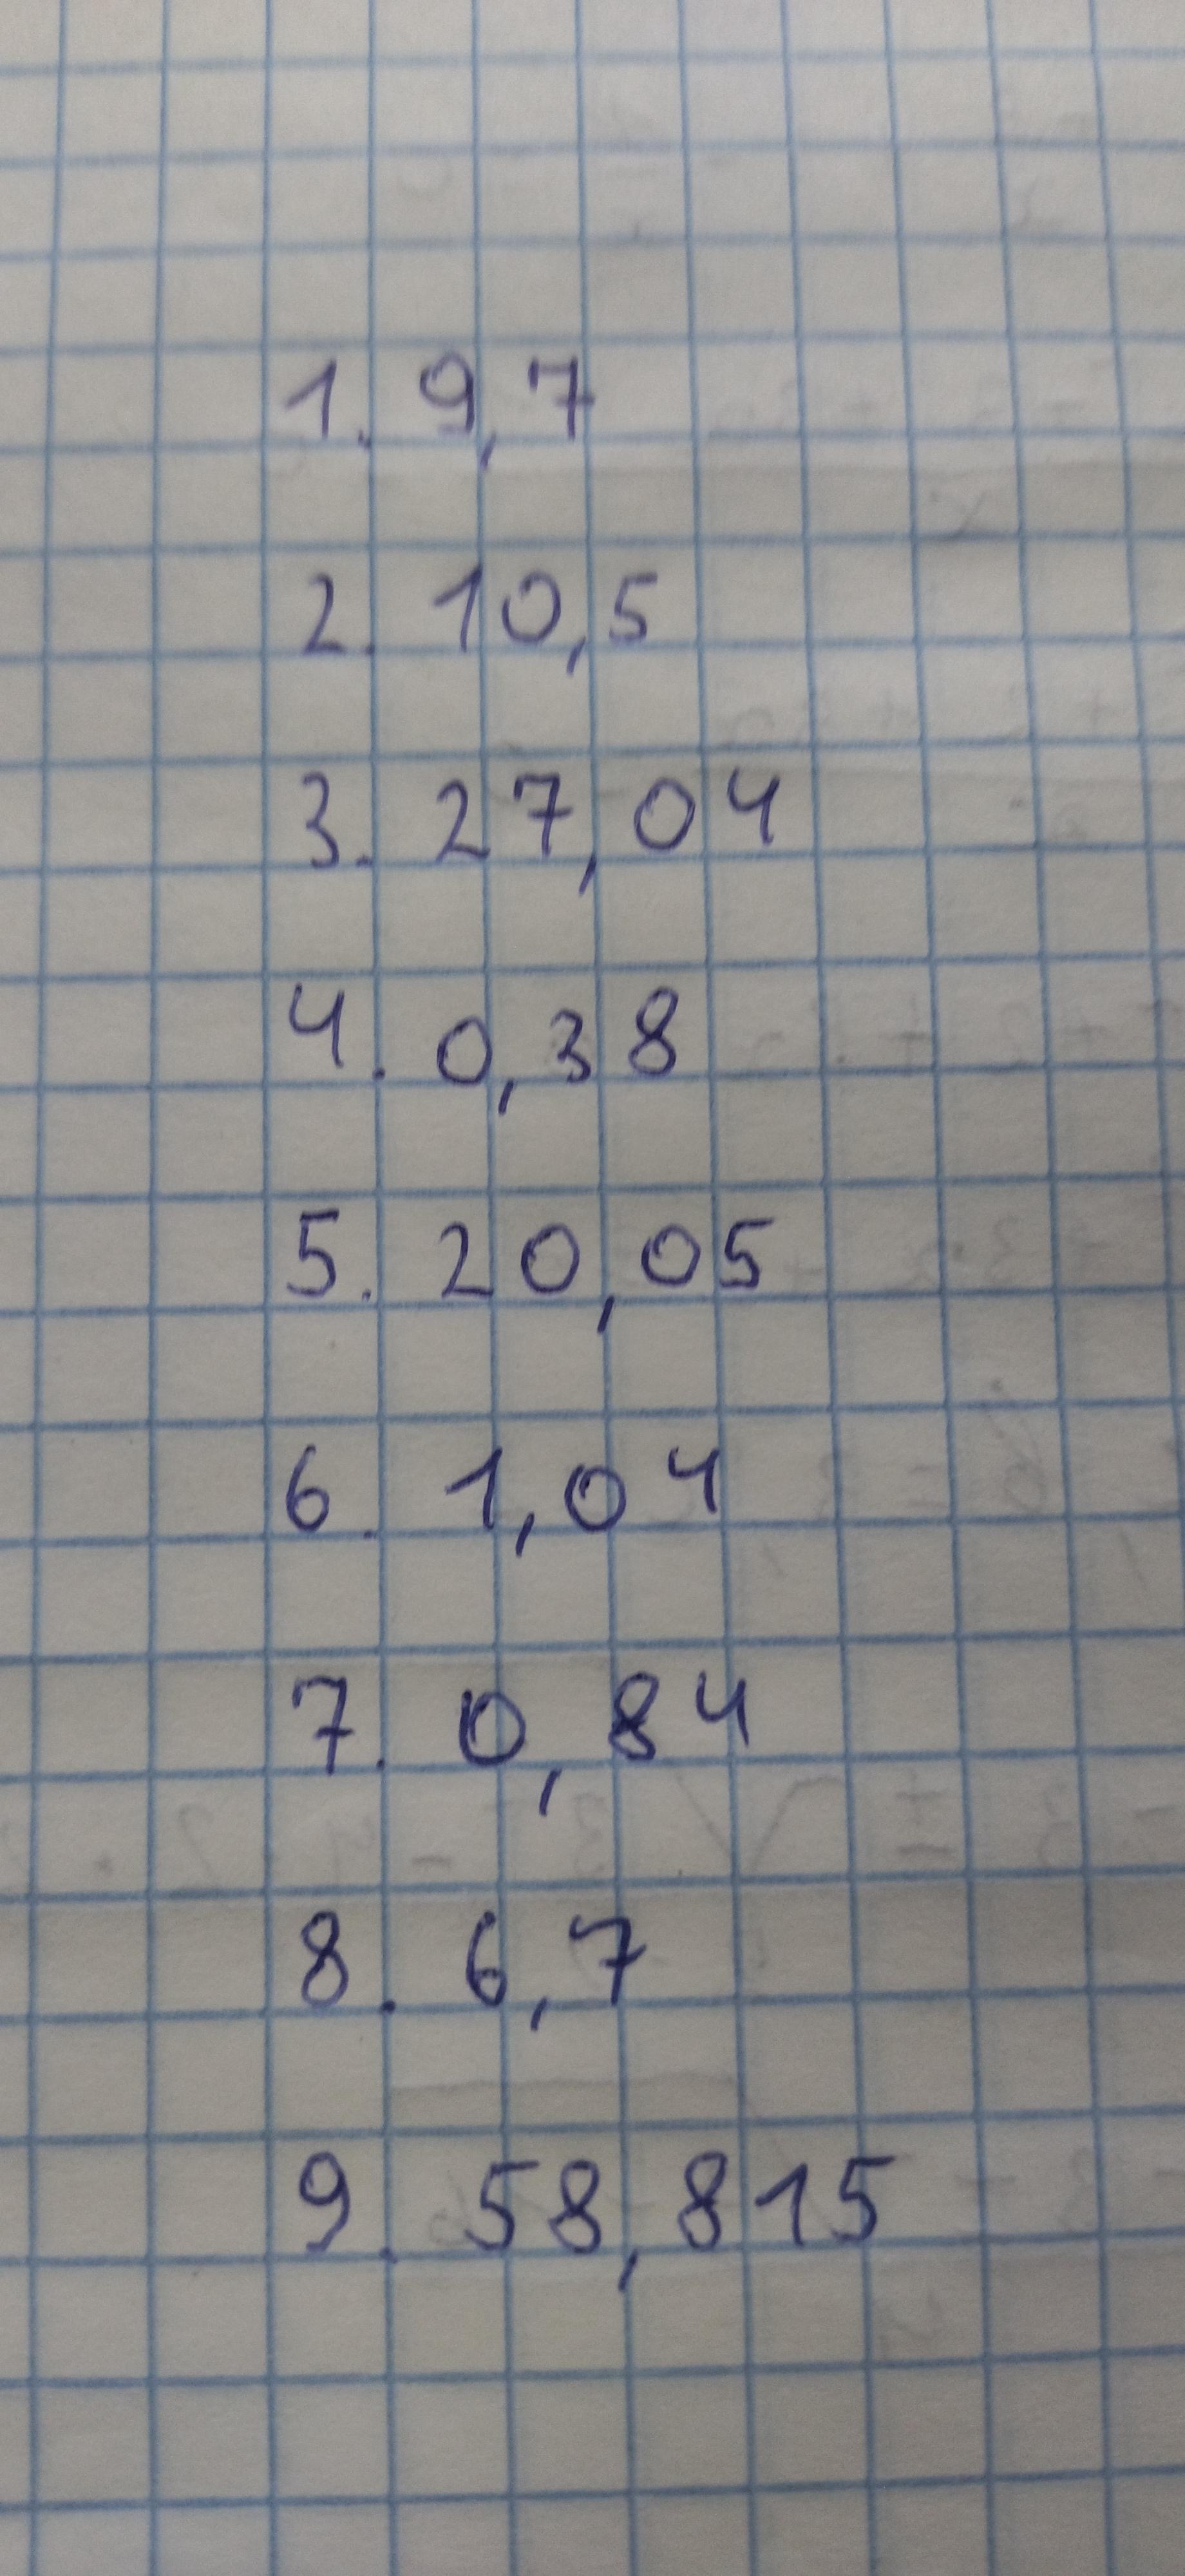 1. 9,7
2. 10,5
3. 27,04
4. 0,38
5. 20,05
6. 1,04
7. 0,84
8. 6,7
9. 58,815